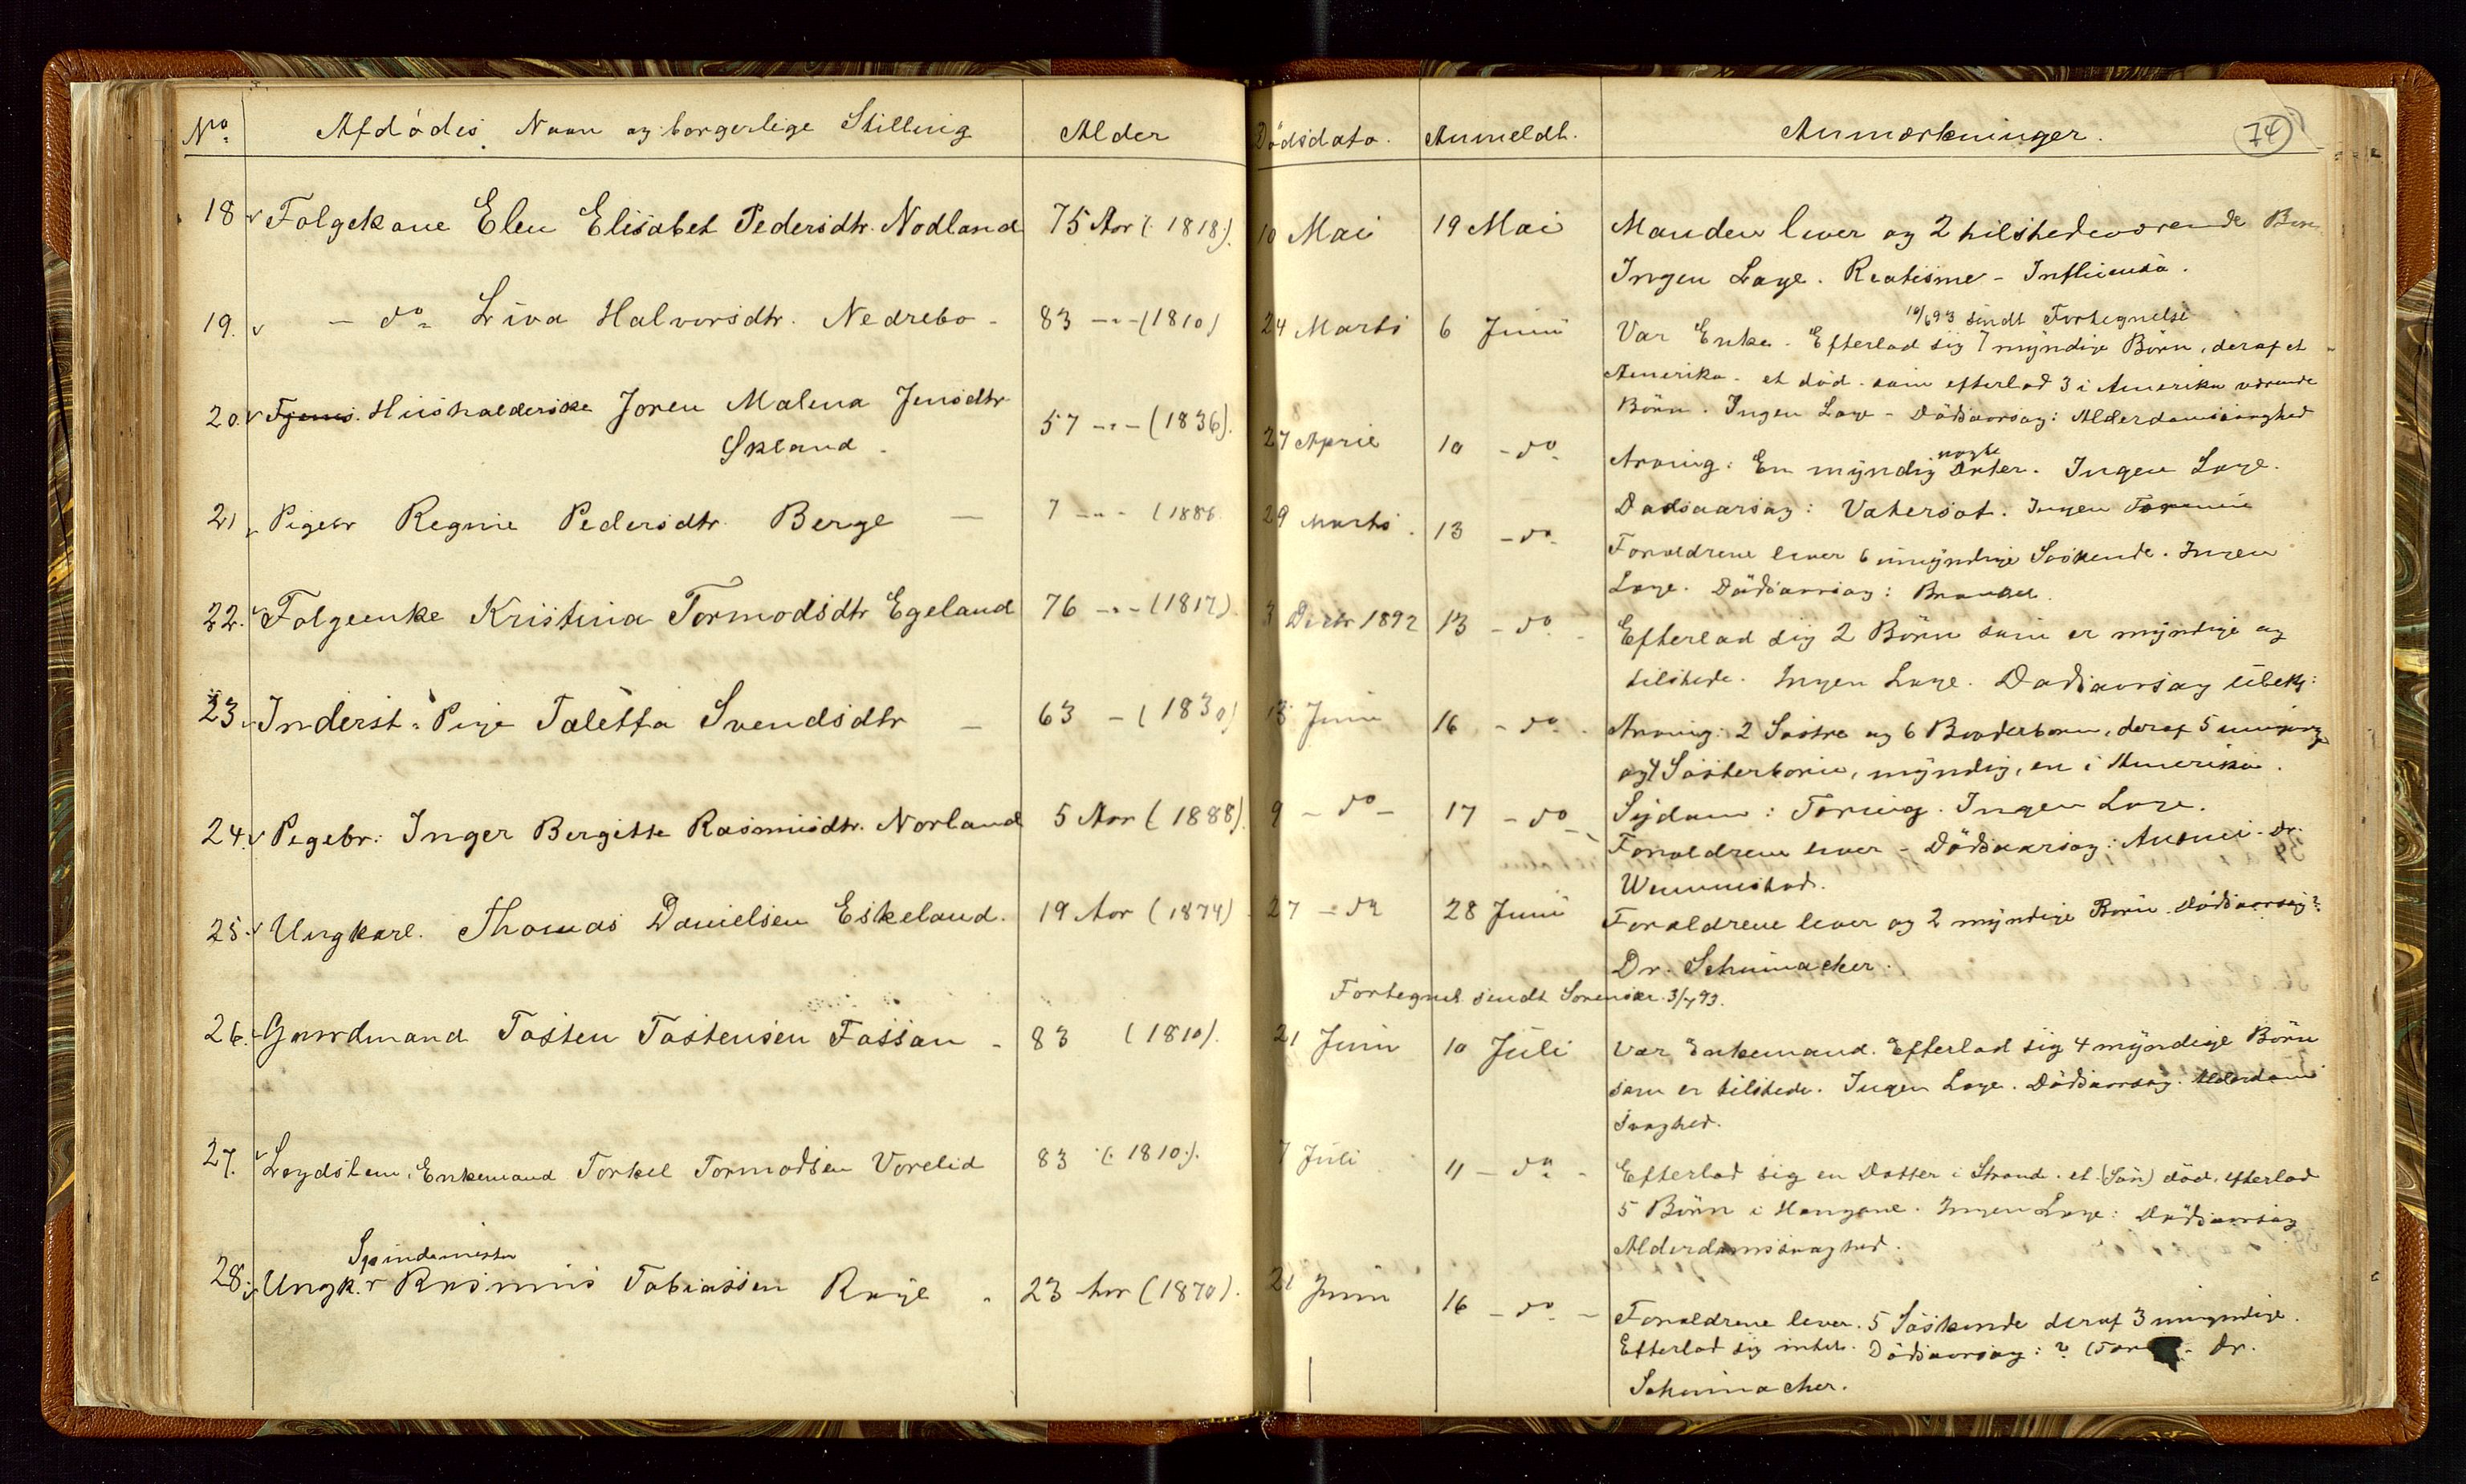 No. Afdødes Navn og borgerlige Stilling Alder Dødsdato. Anmeldt. Anmærkninger. 74
18 Folgekone Elen Elisabet Pedersdtr. Nodland 75 Aar (1818). 10 Mai 19 Mai Manden lever og 2 tilstedeværende Børn
Ingen Laye. Reatisme - Influensa.
10/6 93 sendt Fortegnelse
19. - do Liva Halvorsdtr. Nedrebø - 83 -"- (1810) 24 Marts 6 Juni Var Enke. Efterlod sig 7 myndige Børn, deraf et
Amerika. et død. som efterlod 3 i Amerika værende
Børn. Ingen Laye - Dødsaarsag: Alderdomssvaghed
20. Husholderske Joren Malena Jensdtr 57 -"- (1836). 27 April 10 - do
Skland.
ægte
Arving: En myndig Datter. Ingen Laye.
Dødsaarsag: Vatersot. Ingen
21 Pigebr Regine Pedersdtr. Berge - 7 -"- (1886 29 Marts. 13 - do -
Foræeldrene lever 6 umyndige Søskende. Ingen
Laye. Dødsaarsag:
22. Folgeenke Kristina Tormodsdtr Egeland 76 -"- (1817) 3 Decbr 1892 13 - do - Efterlod sig 2 Børn som er myndige og
tilstede. Ingen Laye. Dødsaarsag übek:
23. Inderst: Pige Taletta Svendsdtr - 63 - (1830) 13 Juni 16 - do. Arving: 2 Søstre og 6 Broderbørn, deraf 5 umyndig
og 4 Søsterbørn, myndig, en i Amerika.
Sygdom: Tæring. Ingen Laye.
24. Pegebr: Inger Bergitte Rasmusdtr. Norland 5 Aar (1888). 9 - do - 17 - do
Forældrene lever - Dødsaarsag: Dr.
25. Ungkarl. Thomas Danielsen Eskeland. 19 Aar (1874) 27 - do 28 Juni Forældrene lever og 2 myndige Børn. Dødsaarsag?
Dr. Schumacher.
Fortegnel. sendt Sorenskr. 3/7 93.
26. Gaardmand Tosten Tostensen Fossan - 83 (1810). 21 Juni 10 Juli Var Enkemand. Efterlod sig 4 myndige Børn
som er tilstede. Ingen Laye. Dødsaarsag. Alderdoms
svaghed.
27. Lægdslem, Enkemand Torkel Tormodsen Vorelid 83 (1810). 7 Juli 11 - do - Efterlod sig en Datter i Strand. et (Søn) død. efterlod
5 Børn i Haugane. Ingen Laye: Dødsaarsag
Alderdomssvaghed.
Spindemester
28. Ungk. Rasmus Tobiassen Rage. 23 Aar (1870). 21 Juni 16 - do - Forældrene lever. 5 Søskende deraf 3 umyndige.
Efterlod sig intet. Dødsaarsag: ? Dr.
Schumacher.